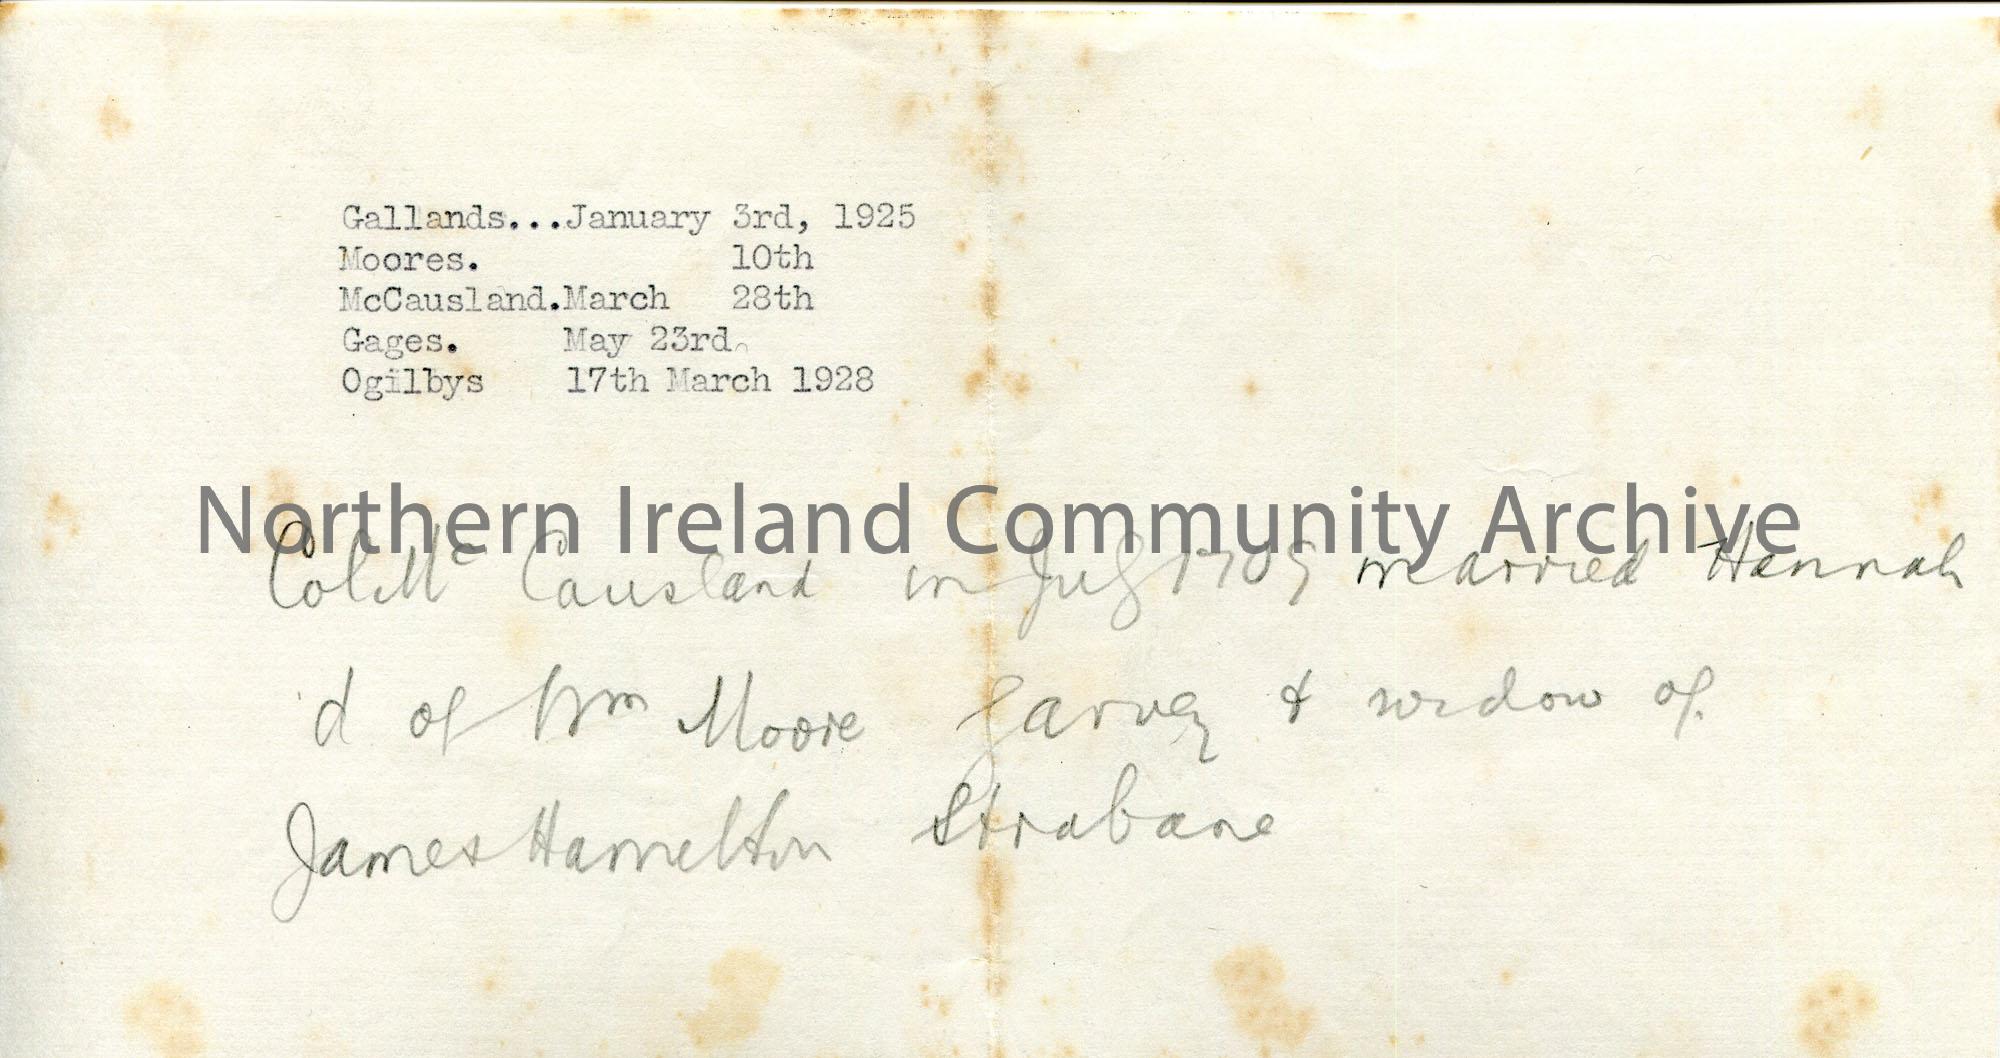 Gallands...January 3rd, 1925
Moores. 10th
McCausland.March 28th
Gages. May 23rd.
Ogilbys 17th March 1928
Northern Ireland Community Archive
Col Mc Causland in July 1709 married Hannah
d of Wm Moore Garvey & widow of
James Hamelton Strabane